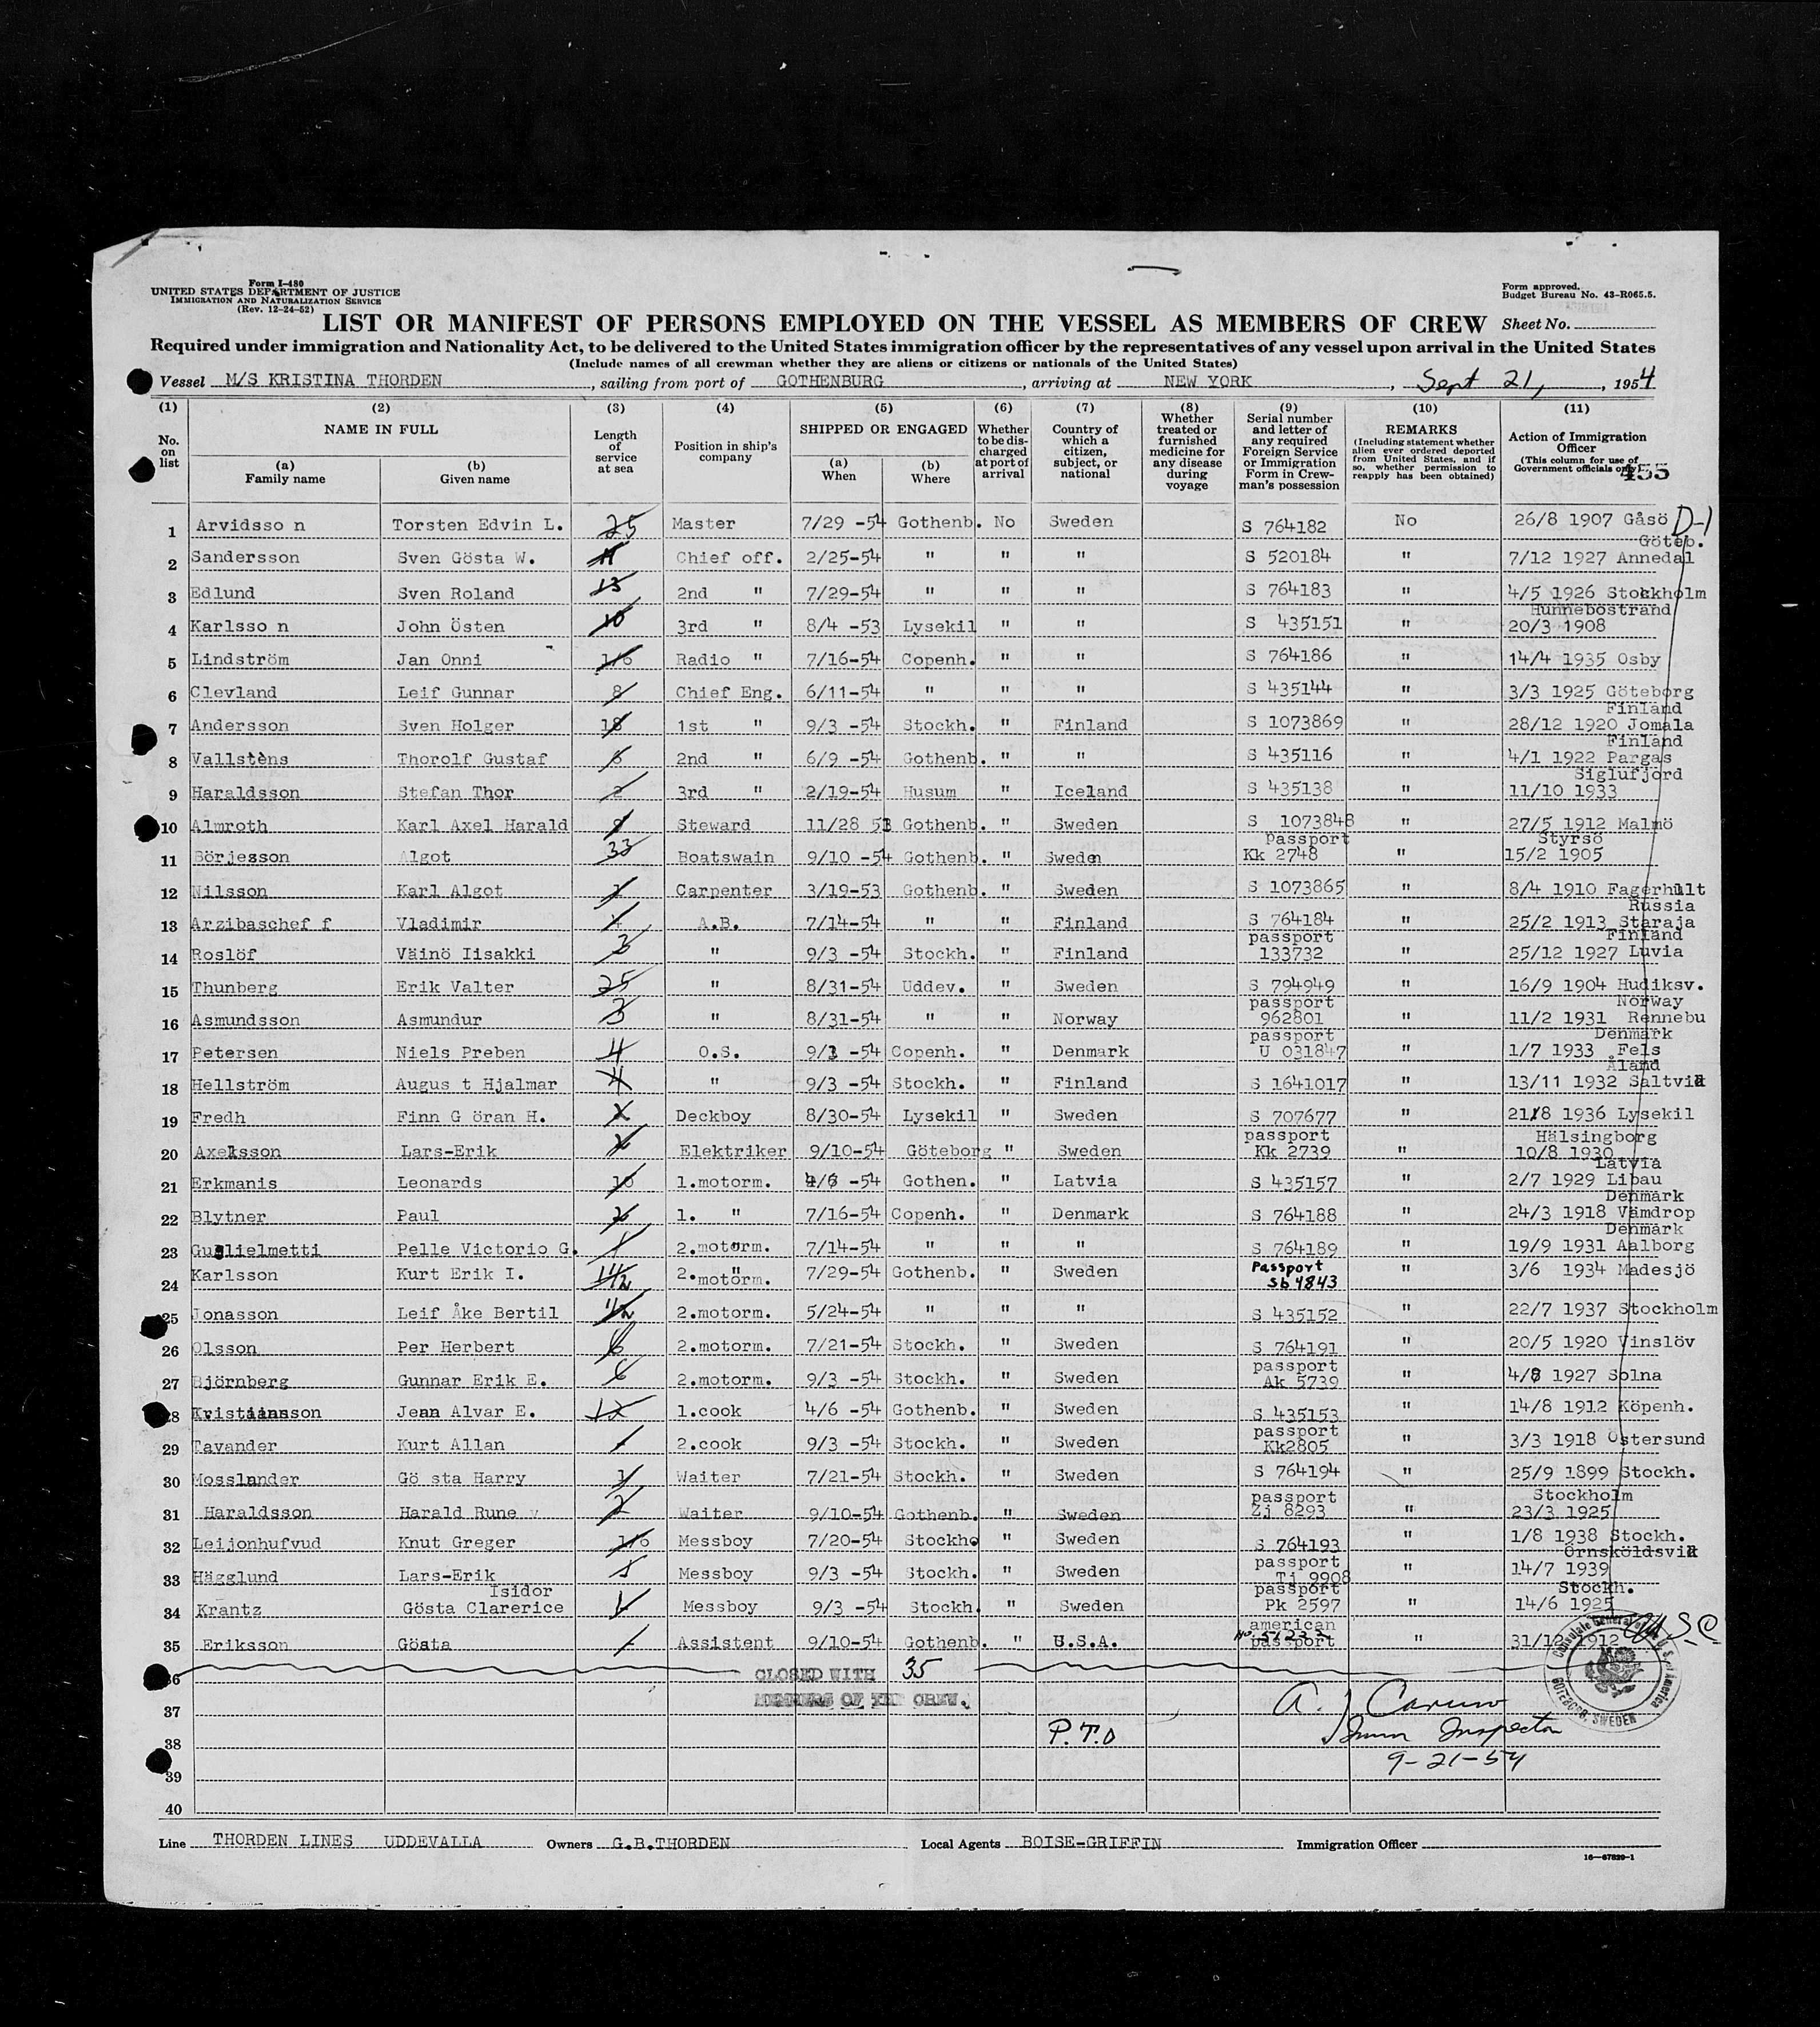 Form I-480
UNITED STATES DEPARTMENT OF JUSTICE
IMMIGRATION AND NATURALIZATION SERVICE
(Rev. 12-24-52)
Form approved.
Budget Bureau No. 43-R065.5.
LIST OR MANIFEST OF PERSONS EMPLOYED ON THE VESSEL AS MEMBERS OF CREW Sheet No.
Required under immigration and Nationality Act, to be delivered to the United States immigration officer by the representatives of any vessel upon arrival in the United States
(Include names of all crewman whether they are aliens or citizens or nationals of the United States)
Vessel M/S KRISTINA THORDEN, sailing from port of GOTHENBURG, arriving at NEW YORK, Sept 21, 1954
(1) (2) (3) (4) (5) (6) (7) (8) (9) (10) (11)
No. on list
NAME IN FULL
(a) Family name
(b) Given name
Length of service at sea
Position in ship's company
SHIPPED OR ENGAGED
(a) When
(b) Where
Whether to be discharged at port of arrival
Country of which a citizen, subject, or national
Whether treated or furnished medicine for any disease during voyage
Serial number and letter of any required Foreign Service or Immigration Form in Crewman's possession
REMARKS
(Including statement whether alien ever ordered deported from United States, and if so, whether permission to reapply has been obtained)
Action of Immigration Officer
(This column for use of Government officials only)
455
1 Arvidsso n Torsten Edvin L. 25 Master 7/29 -54 Gothenb. No Sweden S 764182 No 26/8 1907 Gåsö D-1
2 Sandersson Sven Gösta W. Chief off. 2/25-54 " " " S 520184 " Göteb. 7/12 1927 Annedal
3 Edlund Sven Roland 13 2nd " 7/29-54 " " " S 764183 " 4/5 1926 Stockholm
4 Karlsso n John Östen 10 3rd " 8/4 -53 Lysekil " " S 435151 " Hunnebostrand 20/3 1908
5 Lindström Jan Onni 1/6 Radio " 7/16-54 Copenh. " " S 764186 " 14/4 1935 Osby
6 Clevland Leif Gunnar 8 Chief Eng. 6/11-54 " " " S 435144 " 3/3 1925 Göteborg
7 Andersson Sven Holger 18 1st " 9/3 -54 Stockh. " Finland S 1073869 " Finland 28/12 1920 Jomala
8 Vallstèns Thorolf Gustaf 2nd " 6/9 -54 Gothenb. " " S 435116 " Finland 4/1 1922 Pargas
9 Haraldsson Stefan Thor 2 3rd " 2/19-54 Husum " Iceland S 435138 " Siglufjord 11/10 1933
10 Almroth Karl Axel Harald Steward 11/28 53 Gothenb. " Sweden S 1073848 " 27/5 1912 Malmö
11 Börjesson Algot 33 Boatswain 9/10 -54 Gothenb. " Sweden Passport Kk 2748 " Styrsö 15/2 1905
12 Nilsson Karl Algot Carpenter 3/19-53 Gothenb. " Sweden S 1073865 " 8/4 1910 Fagerhult
13 Arzibaschef f Vladimir A.B. 7/14-54 " " Finland S 764184 " Russia 25/2 1913 Staraja
14 Roslöf Väinö Iisakki 3 " 9/3 -54 Stockh. " Finland passport 133732 " Finland 25/12 1927 Luvia
15 Thunberg Erik Valter 25 " 8/31-54 Uddev. " Sweden S 794949 " 16/9 1904 Hudiksv.
16 Asmundsson Asmundur 3 " 8/31-54 " " Norway passport 962801 " Norway 11/2 1931 Rennebu
17 Petersen Niels Preben 4 O.S. 9/1 -54 Copenh. " Denmark passport U 031847 " Denmark 1/7 1933 Fels
18 Hellström Augus t Hjalmar 4 " 9/3 -54 Stockh. " Finland S 1641017 " Åland 13/11 1932 Saltvik
19 Fredh Finn G öran H. Deckboy 8/30-54 Lysekil " Sweden S 707677 " 21/8 1936 Lysekil
20 Axelsson Lars-Erik Elektriker 9/10-54 Göteborg " Sweden passport Kk 2739 " Hälsingborg 10/8 1930
21 Erkmanis Leonards 10 1.motorm. 4/6 -54 Gothen. " Latvia S 435157 " Latvia 2/7 1929 Libau
22 Blytner Paul 1. " 7/16-54 Copenh. " Denmark S 764188 " Denmark 24/3 1918 Vamdrop
23 Guglielmetti Pelle Victorio G. 2.motorm. 7/14-54 " " " S 764189 " Denmark 19/9 1931 Aalborg
24 Karlsson Kurt Erik I. 1 1/2 2.motorm. 7/29-54 Gothenb. " Sweden Passport Sb 4843 " 3/6 1934 Madesjö
25 Jonasson Leif Åke Bertil 1/2 2.motorm. 5/24-54 " " " S 435152 " 22/7 1937 Stockholm
26 Olsson Per Herbert 6 2.motorm. 7/21-54 Stockh. " Sweden S 764191 " 20/5 1920 Vinslöv
27 Björnberg Gunnar Erik E. 6 2.motorm. 9/3 -54 Stockh. " Sweden passport Ak 5739 " 4/8 1927 Solna
28 Kristiansson Jean Alvar E. 12 1.cook 4/6 -54 Gothenb. " Sweden S 435153 " 14/8 1912 Köpenh.
29 Tavander Kurt Allan 2.cook 9/3 -54 Stockh. " Sweden passport Kk2805 " 3/3 1918 Östersund
30 Mosslander Gö sta Harry Waiter 7/21-54 Stockh. " Sweden S 764194 " 25/9 1899 Stockh.
31 Haraldsson Harald Rune 2 Waiter 9/10-54 Gothenb. " Sweden passport Zj 8293 " Stockholm 23/3 1925
32 Leijonhufvud Knut Greger 1/6 Messboy 7/20-54 Stockho " Sweden S 764193 " 1/8 1938 Stockh.
33 Hägglund Lars-Erik Messboy 9/3 -54 Stockh. " Sweden passport Tj 9908 " Örnsköldsvik 14/7 1939
34 Krantz Gösta Clarerice Isidor Messboy 9/3 -54 Stockh. " Sweden passport Pk 2597 " Stockh. 14/6 1925
35 Eriksson Gösta Assistent 9/10-54 Gothenb. " U.S.A. american passport " 31/12 1912 U.S.C.
36 CLOSED WITH 35
MEMBERS OF THE CREW.
37 A. J Caruso
38 P.T.O Immn Inspector
39 9-21-54
40
Consulate General of the U.S. of America
GÖTEBORG, SWEDEN
Line THORDEN LINES UDDEVALLA Owners G.B.THORDEN Local Agents BOISE-GRIFFIN Immigration Officer
16—67829-1